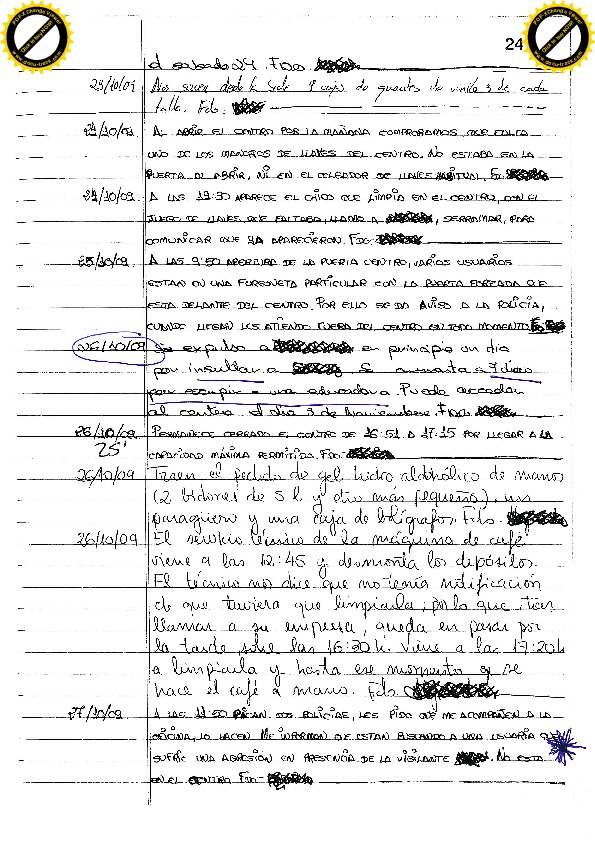 24
el sabado 24. Fdo
23/10/09 Nos traen desde la Sede 9 cajas de guantes de vinilo 3 de cada
talla. Fdo.
24/10/09 AL ABRIR EL CENTRO POR LA MAÑANA COMPROBAMOS QUE FALTA
UNO DE LOS MANOJOS DE LLAVES DEL CENTRO. NO ESTABA EN LA
PUERTA AL ABRIR, NI EN EL COLGADOR DE LLAVES HABITUAL. FDO
24/10/09 A LAS 19:30 APARECE EL CHICO QUE LIMPIA EN EL CENTRO, CON EL
JUEGO DE LLAVES QUE FALTABA, LLAMO A , SERRAMAR, PARA
COMUNICAR QUE YA APARECIERON. FDO-
25/10/09 A LAS 9:50 APERTURA DE LA PUERTA CENTRO, VARIOS USUARIOS
ESTAN EN UNA FURGONETA PARTICULAR CON LA PUERTA FORZADA QUE
ESTA DELANTE DEL CENTRO. POR ELLO SE DA AVISO A LA POLICÍA,
CUANDO LLEGAN LES ATIENDO FUERA DEL CENTRO EN TODO MOMENTO. FDO
26/10/09 Se expulsa a en principio un dia
por insultar a Se aumenta a 7 dias
por escupir a una educadora. Puede acceder
al centro el dia 3 de Noviembre. Fdo.
26/10/09 PERMANECE CERRADO EL CENTRO DE 16:51 A 17:15 POR LLEGAR A LA
25' CAPACIDAD MÁXIMA PERMITIDA. FDO-
26/10/09 Traen el pedido de gel hidro alcohólico de manos
(2 bidones de 5 l. y otro más pequeño), un
paragüero y una caja de bolígrafos. Fdo.
26/10/09 El servicio técnico de la máquina de café
viene a las 12:45 y desmonta los depósitos.
El técnico nos dice que no tenía notificación
de que tuviera que limpiarla, por lo que tien
llamar a su empresa, queda en pasar por
la tarde sobre las 16:30 h. Viene a las 17:20h
a limpiarla y hasta ese momento se
hace el café a mano. Fdo.
27/10/09 A LAS PICAN DOS POLICÍAS, LES PIDO QUE ME ACOMPAÑEN A LA
OFICINA, LO HACEN. ME INFORMAN QUE ESTAN BUSCANDO A UNA USUARIA QUE
SUFRIÓ UNA AGRESIÓN EN PRESENCIA DE LA VIGILANTE . NO ESTA
EN EL CENTRO. FDO-